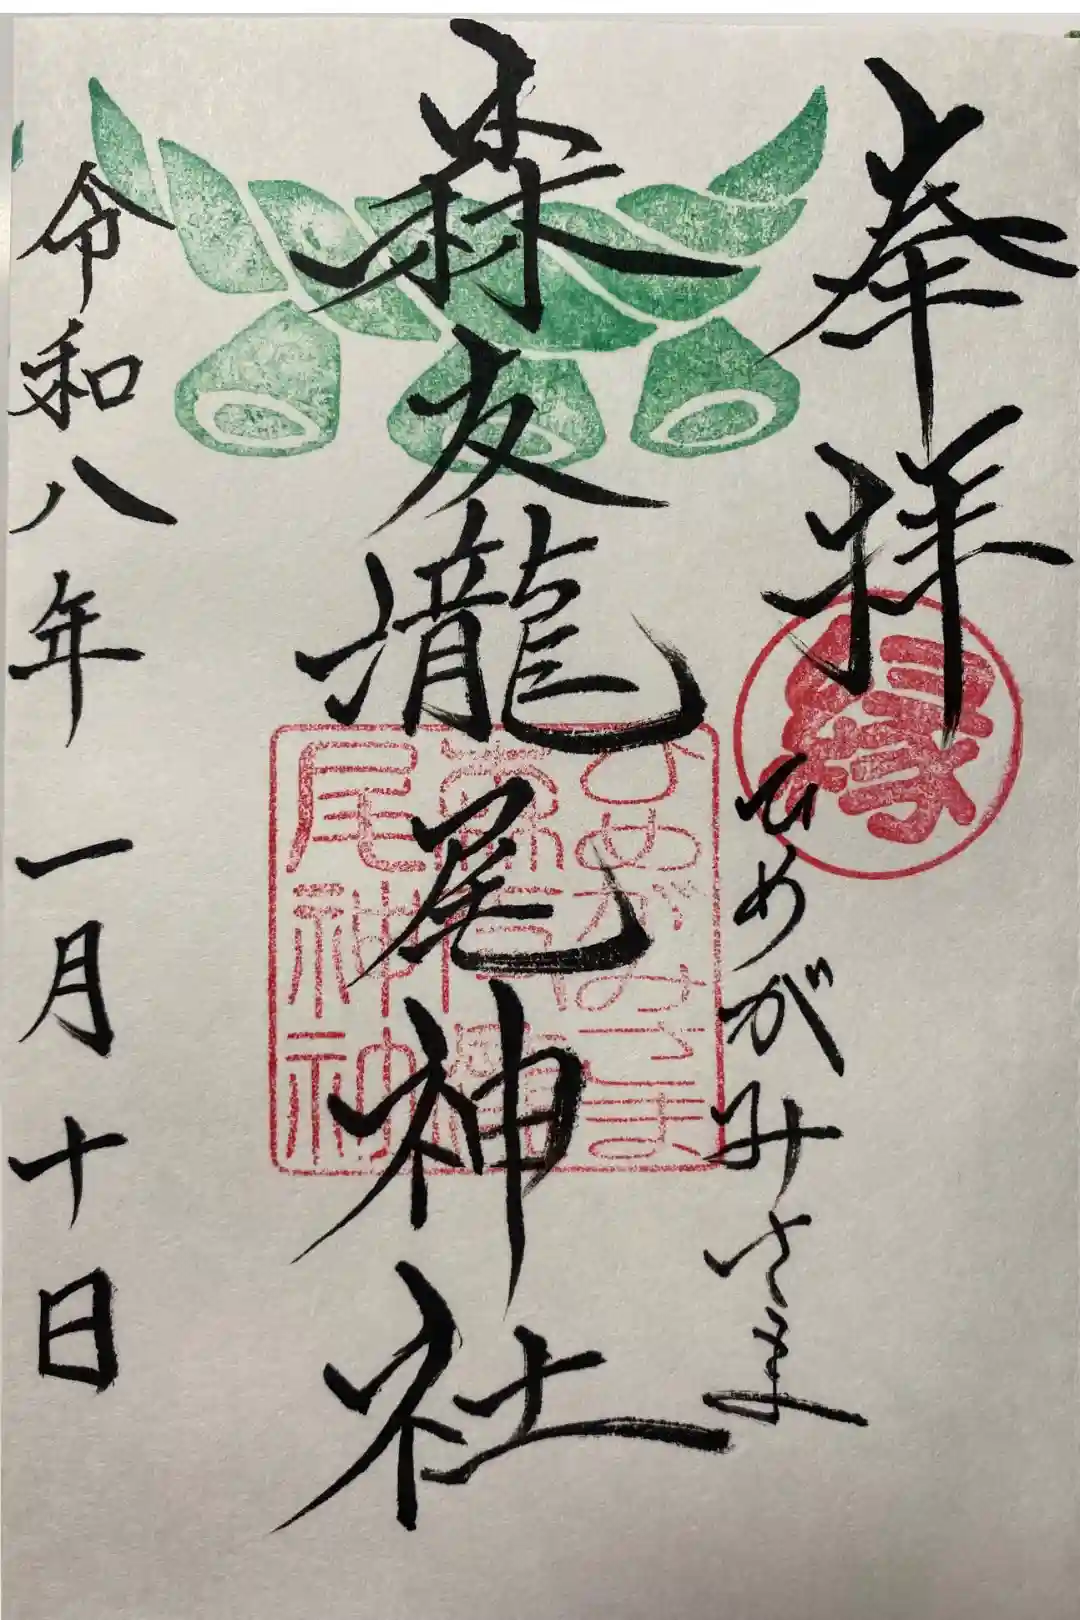 奉拝
縁
ひめがみさま
森友瀧尾神社
ひめがみさま
森友瀧
尾神社
令和八年一月十日